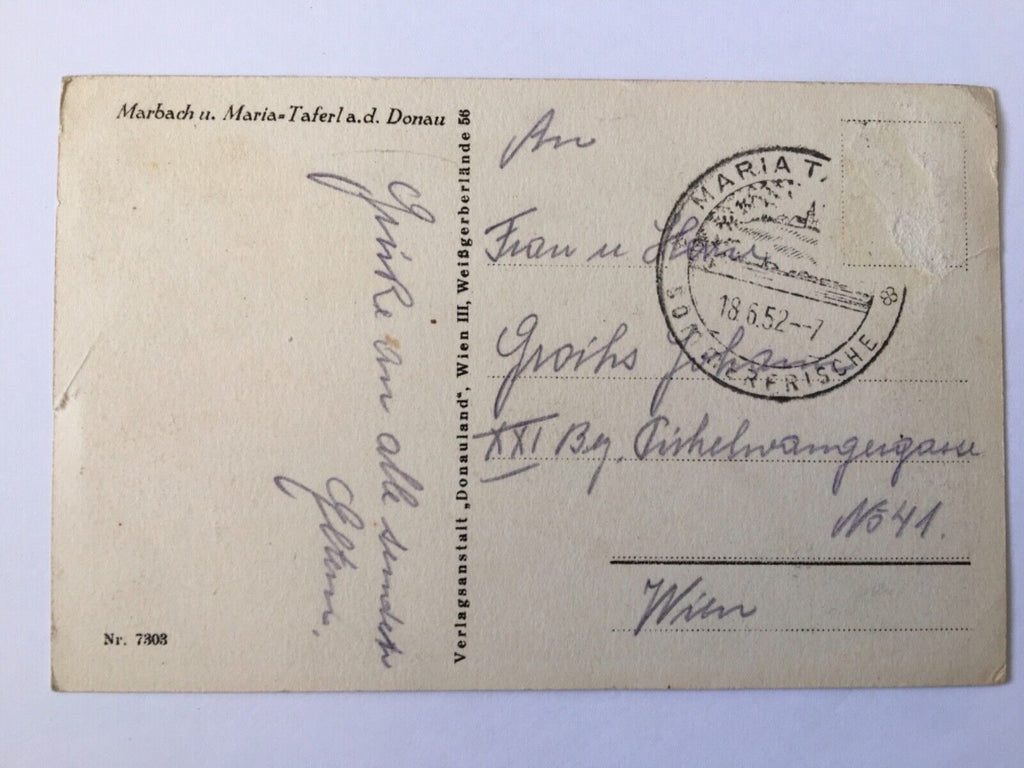 Marbach u. Maria-Taferl a.d. Donau
Verlagsanstalt „Donauland“, Wien III, Weißgerberlände 56
Grüße an alle sendet
Eltern.
Nr. 7303
An
Frau u
Johann
XXI Bez.
No 41.
Wien
MARIA TA
SOMMERFRISCHE
18.6.52--7